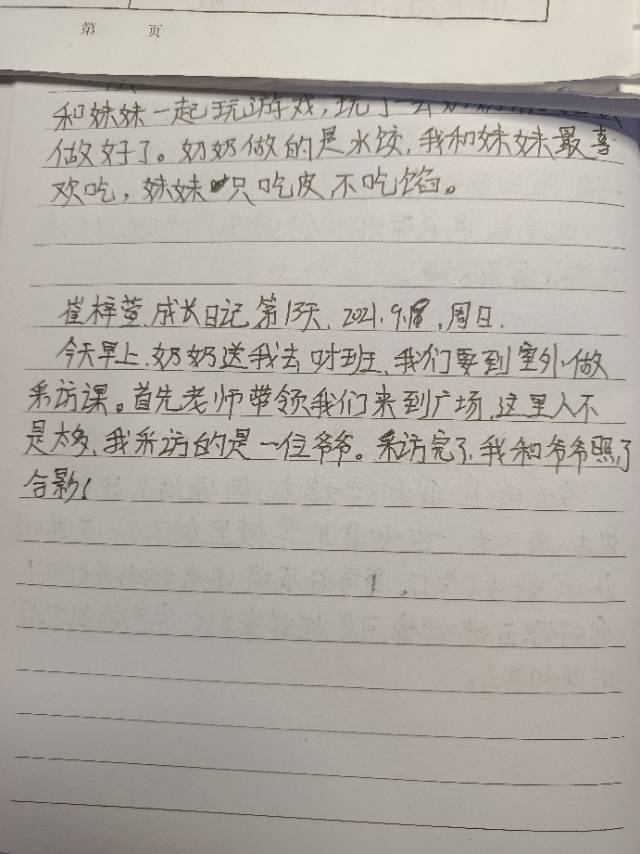 第 页
和妹妹一起玩游戏,玩了一会
做好了。奶奶做的是水饺,我和妹妹最喜
欢吃,妹妹只吃皮不吃馅。
崔梓萱.成长日记第13天.2021.9.18,周日.
今天早上.奶奶送我去上班.我们要到室外做
采访课。首先老师带领我们来到广场,这里人不
是太多,我采访的是一位爷爷。采访完了,我和爷爷照了
合影!